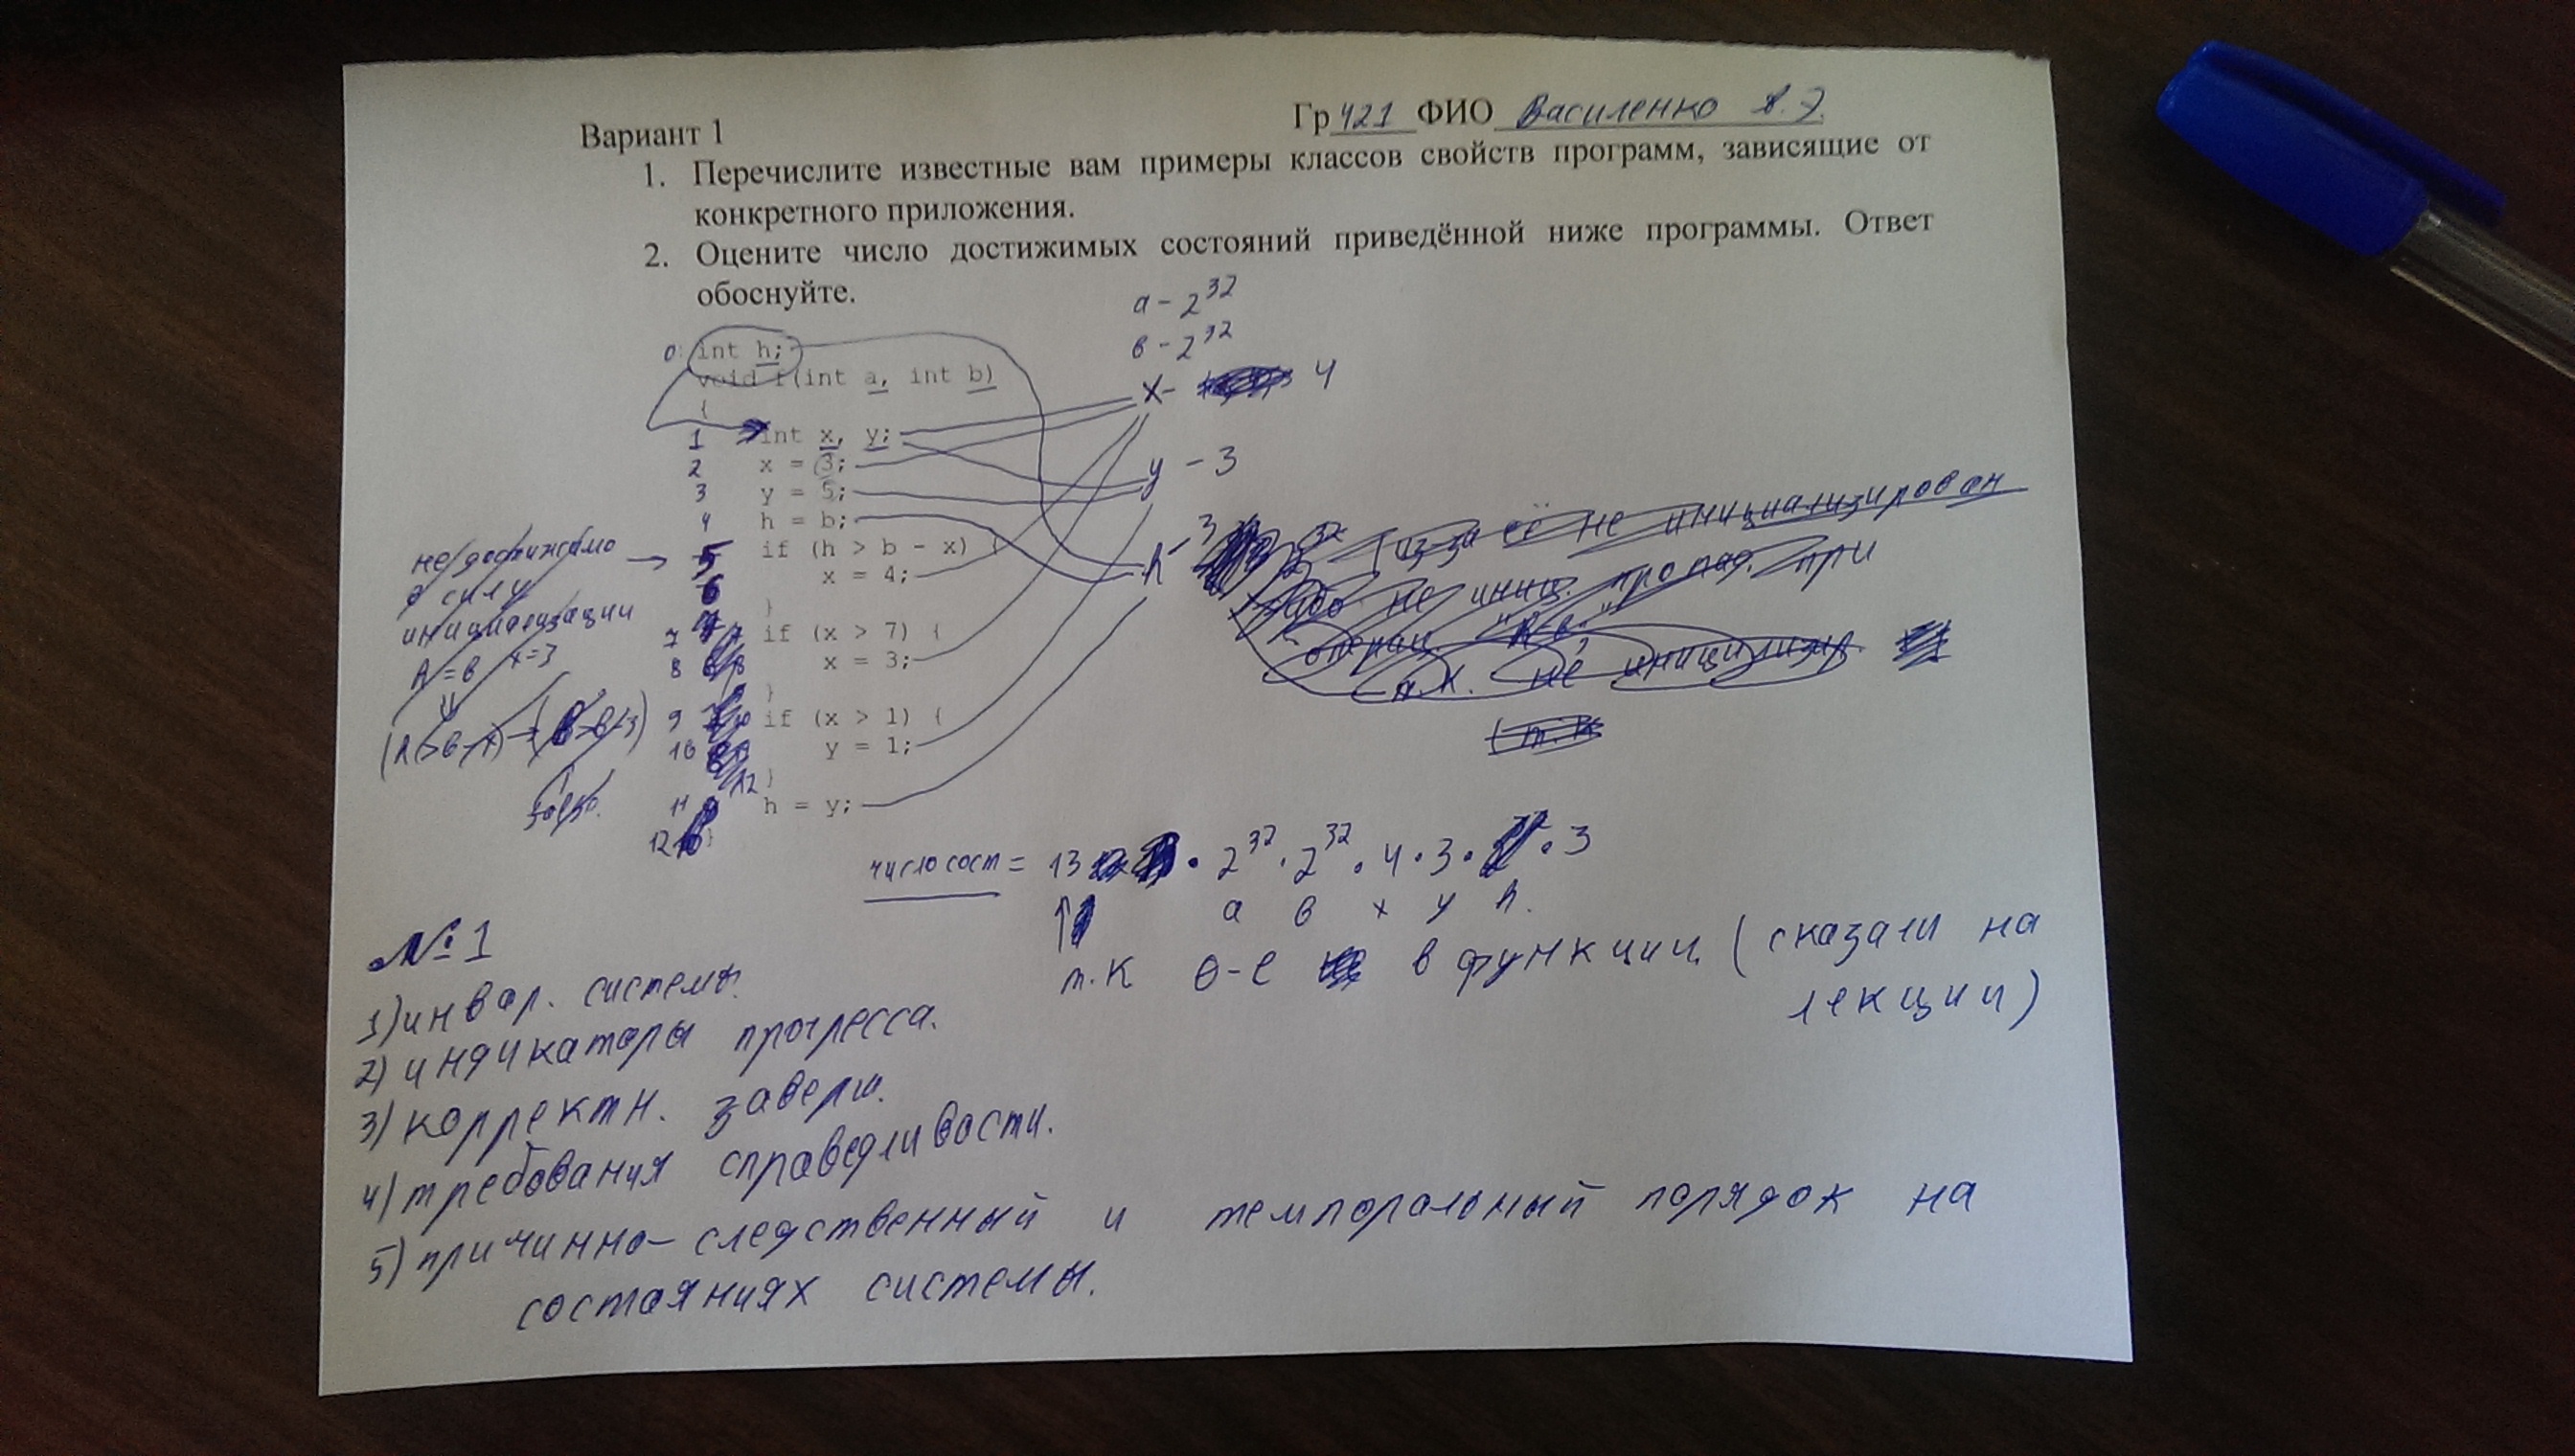 Вариант 1
Гр 421 ФИО Василенко А.Э.
1. Перечислите известные вам примеры классов свойств программ, зависящие от
конкретного приложения.
2. Оцените число достижимых состояний приведённой ниже программы. Ответ
обоснуйте.
a - 2^32
в - 2^32
x - 4
y - 3
h - 3
0: int h;
void f(int a, int b)
{
1 int x, y;
2 x = 3;
3 y = 5;
4 h = b;
5 if (h > b - x) {
6 x = 4;
}
7 if (x > 7) {
8 x = 3;
}
9 if (x > 1) {
10 y = 1;
}
11 h = y;
12 }
недостижимо
в силу
инициализации
h = в x=3
(из за её не инициализирован
либо не иниц. пропад. при
операц.
т.к. не инициализир.
(т.к
число сост = 13 · 2^32 · 2^32 · 4 · 3 · 3
a в x y h.
т.к 0-е в функции. (сказали на
лекции)
№1
1) инвар. системы.
2) индикаторы прогресса.
3) корректн. заверш.
4) требования справедливости.
5) причинно-следственный и темпоральный порядок на
состояниях системы.